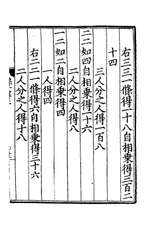 右三三一條得一十八自相乘得三百二
十四
三人分之人得一百八
二二如四自相乘得一十六
二人分之人得八
一二如二自相乘得四
一人得四
右二二一條得六自相乘得三十六
二人分之人得十八